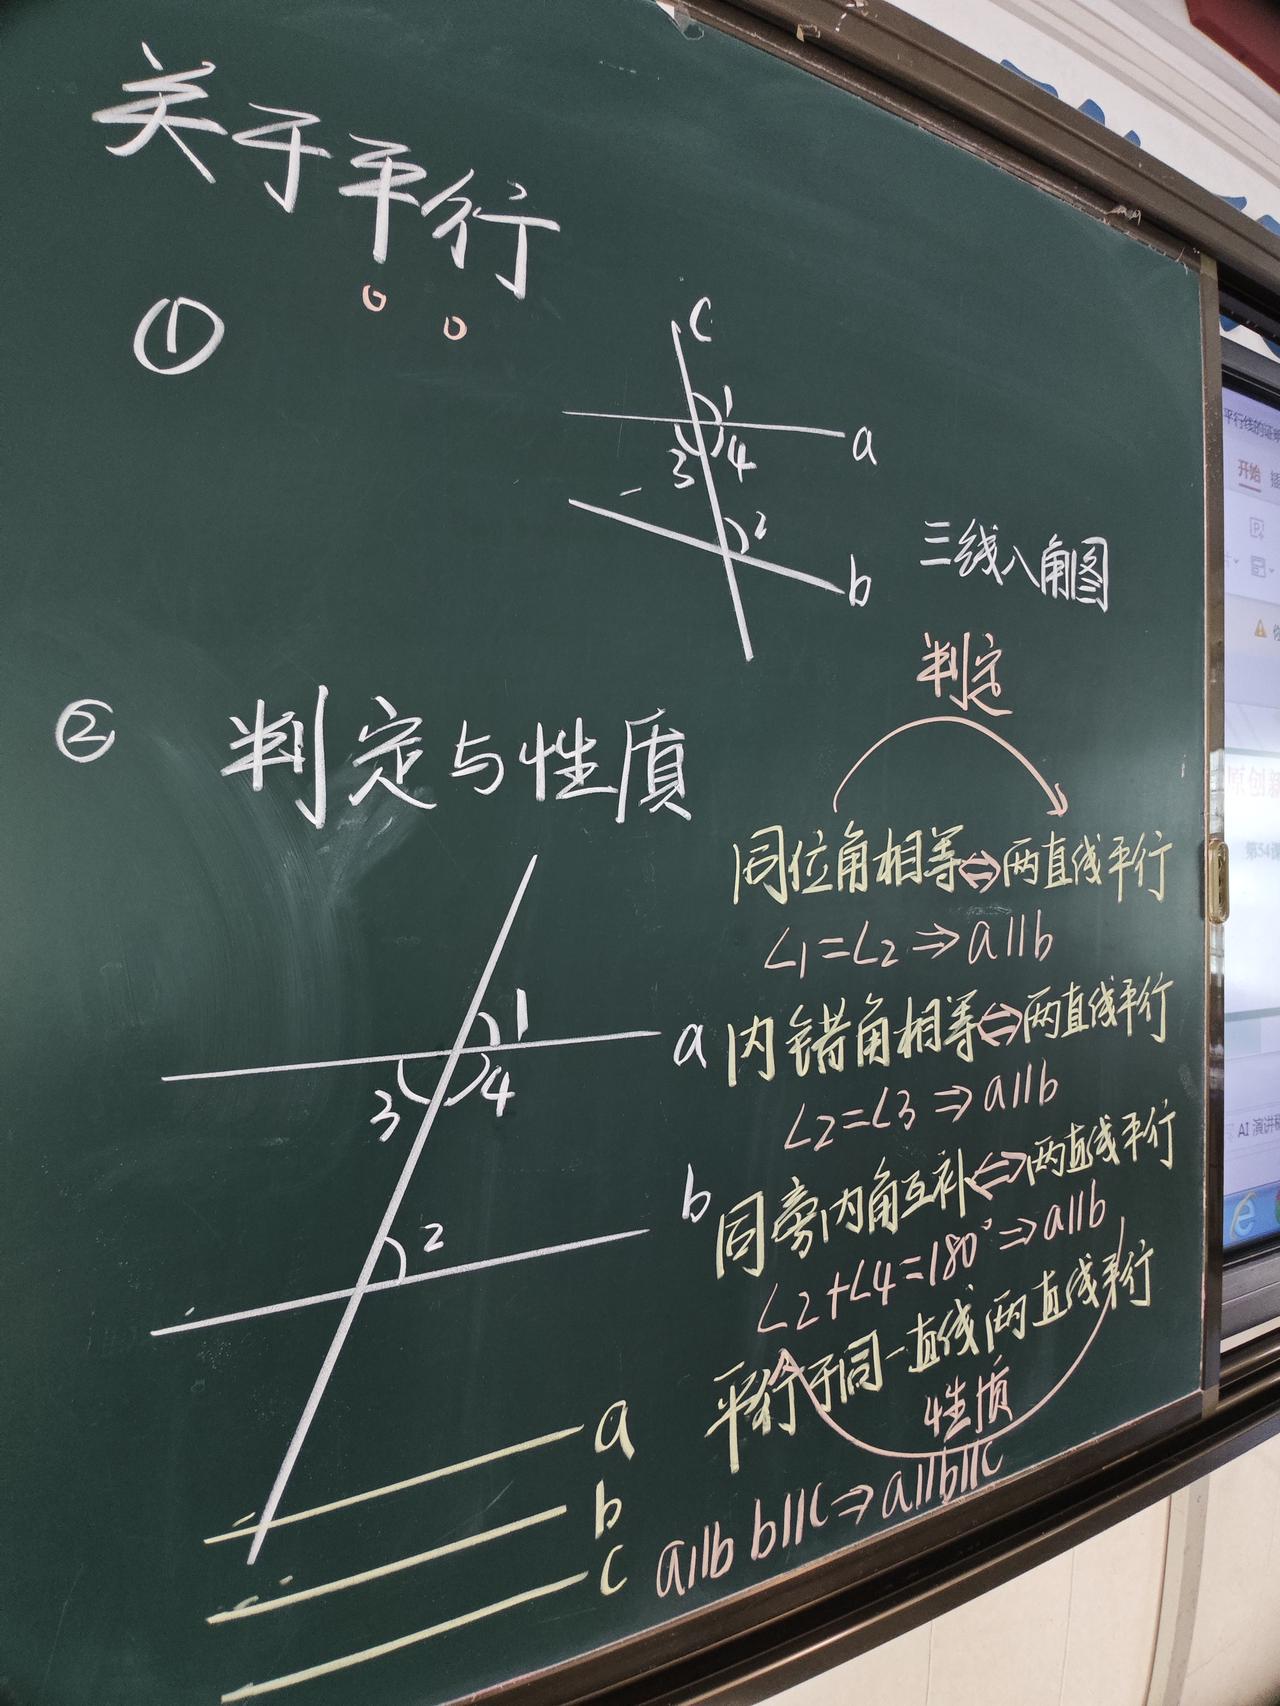 关于平行
①
c
1
a
3 4
2
b
三线八角图
② 判定与性质
判定
同位角相等⇔两直线平行
∠1=∠2⇒a∥b
内错角相等⇔两直线平行
∠2=∠3⇒a∥b
同旁内角互补⇔两直线平行
∠2+∠4=180°⇒a∥b
平行于同一直线两直线平行
性质
a∥b b∥c⇒a∥b∥c
1
a
3 4
b
2
a
b
c
开始
原创新
第54课
AI 演讲